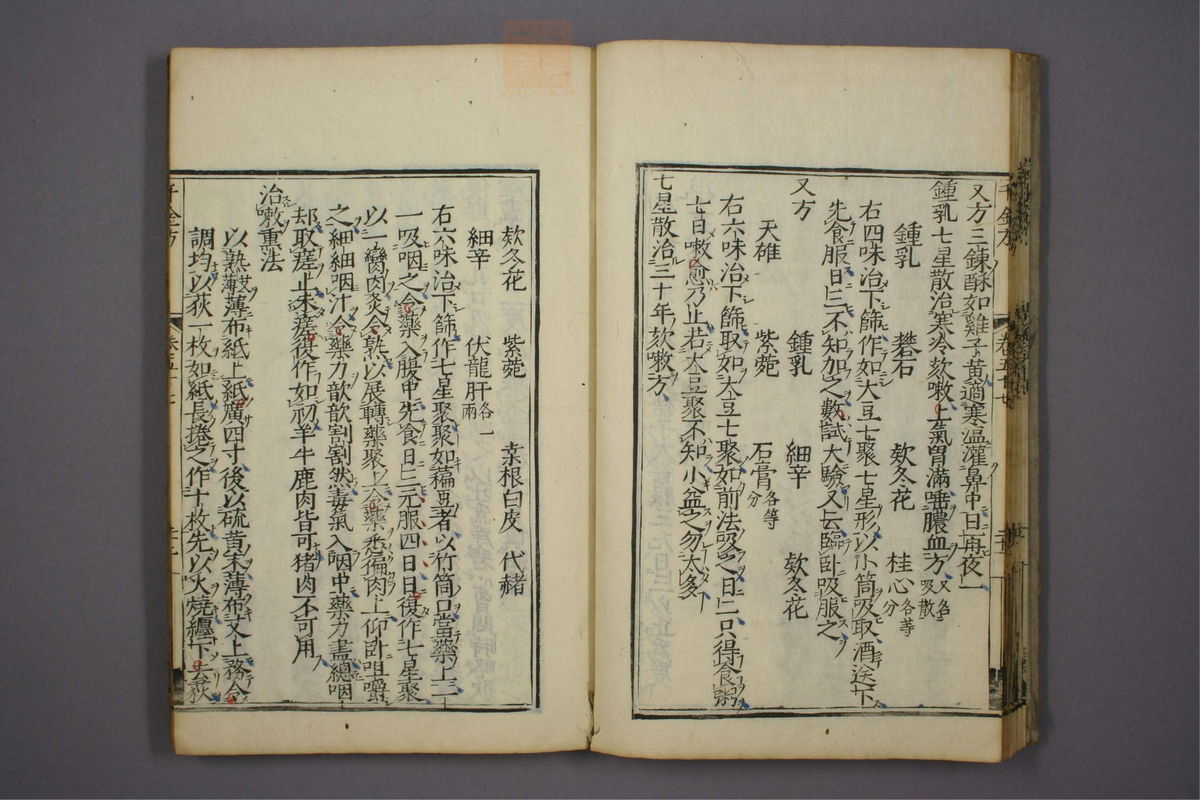 又方三錬酥如雞子黄適寒温灌鼻中日再夜一
鍾乳七星散治寒冷欬嗽上氣胷滿唾膿血方又名吸散
鍾乳 礬石 欵冬花 桂心各等分
右四味治下篩作如大豆七聚七星形以小筒吸取酒送下
先食服日三不知加之數試大驗又云臨卧吸服之
又方
天雄 紫菀 石膏各等分
鍾乳 細辛 欵冬花
右六味治下篩取如大豆七聚如前法吸之日二只得食粥
七日嗽愈乃止若大豆聚不知小益之勿太多
七星散治三十年欬嗽方
欵冬花 紫菀 桒根白皮 代赭
細辛 伏龍肝各一兩
右六味治下篩作七星聚聚如藊豆者以竹筒口當藥上一
一吸咽之令藥入腹中先食日三丸服四日日復作七星聚
以一臠肉炙令熟以展轉藥聚上令藥悉徧肉上仰卧咀嚼
之細細咽汁令藥力歆歆割割然毒氣入咽中藥力盡總咽
却取瘥止未瘥復作如初羊牛鹿肉皆可猪肉不可用
治嗽熏法
以熟艾薄薄布紙上紙廣四寸後以硫黄末薄布艾上務令
調均以荻一枚如紙長捲之作十枚先以火燒纏下去荻
千金方